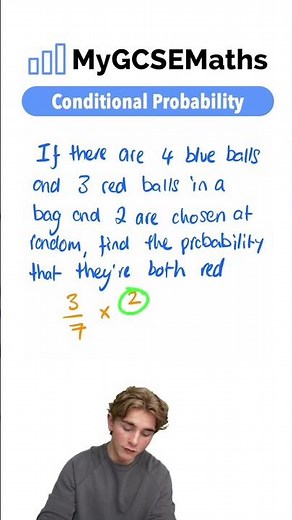 MyGCSEMaths
Conditional Probability
If there are 4 blue balls
and 3 red balls in a
bag and 2 are chosen at
random, find the probability
that they're both red
3/7 × 2